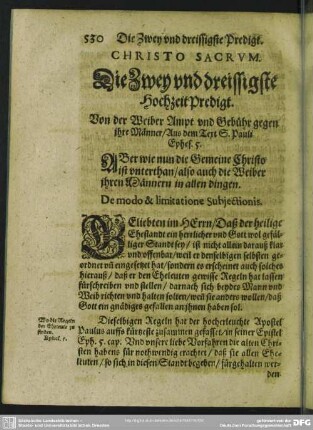 530 Die Zwey vnd dreissigste Predigt.
CHRISTO SACRVM.
Die Zwey vnd dreissigste
Hochzeit Predigt.
Von der Weiber Ampt vnd Gebühr gegen
jhre Männer / Aus dem Text S. Pauli
Ephes. 5.
ABer wie nun die Gemeine Christo
ist vnterthan / also auch die Weiber
jhren Männern in allen dingen.
De modo & limitatione Subjectionis.
GEliebten im HErrn / Daß der heilige
Ehestandt ein herrlicher vnd Gott wol gefäl-
liger Standt sey / ist nicht allein daraus klar
vnd offenbar / weil er denselbigen selbsten ge-
ordnet vñ eingesetzet hat / sondern es erscheinet auch solches
hieraus / daß er den Eheleuten gewisse Regeln hat lassen
fürschreiben vnd stellen / darnach sich beydes Mann vnd
Weib richten vnd halten solten / weñ sie anders wollen / daß
Gott ein gnädiges gefallen an jhnen haben sol.
Wo die Regeln
der Eheleute zu
finden.
Ephes. 5.
Dieselbigen Regeln hat der hocherleuchte Apostel
Paulus auffs kürtzeste zusammen gefasset / in seiner Epistel
Eph. 5. cap. Vnd vnsere liebe Vorfahren die alten Chri-
sten habens für nothwendig erachtet / daß sie allen Ehe-
leuten / so sich in diesen Standt begeben / fürgehalten wer-
den